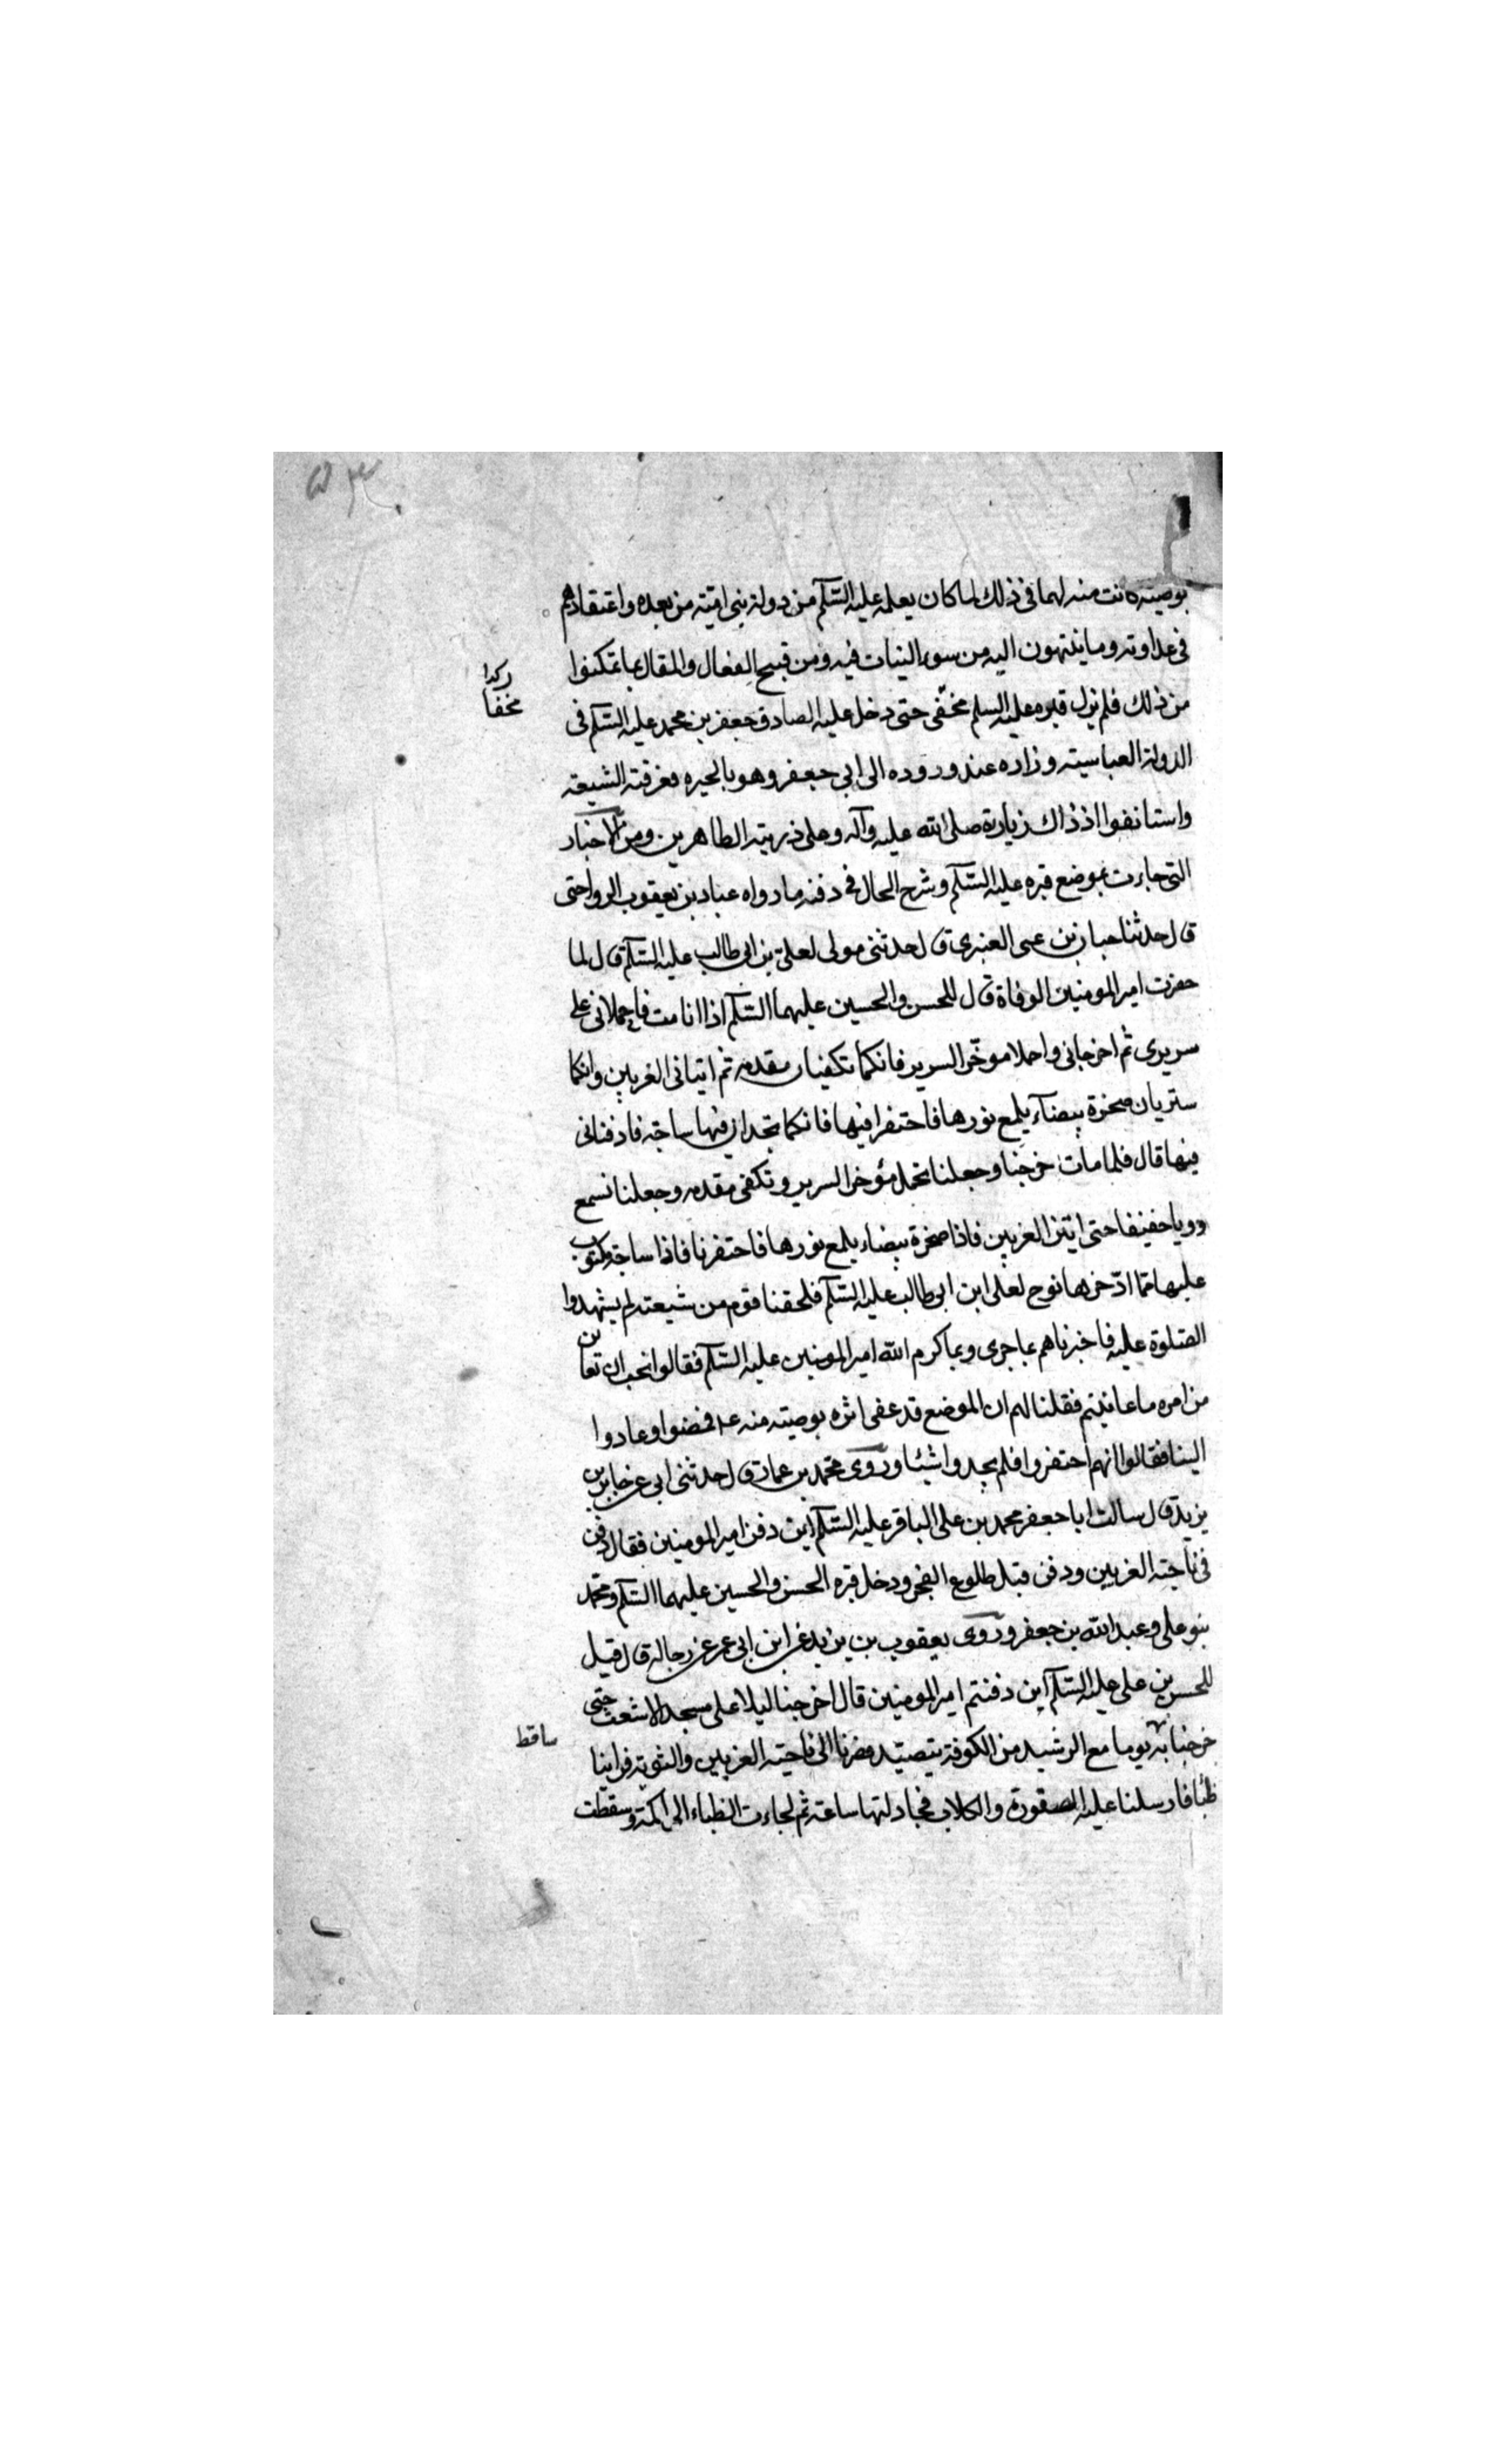 بوصيته كانت منه لهما فى ذلك لما كان يعلمه عليه السّلم من دولة بنى اميّة من بعده واعتقادهم
فى عداوته وما ينتهون اليه من سوء النيات فيه ومن قبيح الفعال والمقال بما تمكنوا
من ذلك فلم يزل قبره عليه السلم مخفى حتى دخل عليه الصادق جعفر بن محمد عليه السّلم فى
الدولة العباسيته وزاره عند وروده الى ابى جعفر وهو بالحيره فعرفته الشيعة
واستانفوا اذ ذاك زيارته صلى الله عليه وآله وعلى ذريته الطاهرين ومن الاخبار
التى جاءت بموضع قبره عليه السّلم وشرح الحال فى دفنه ما رواه عباد بن يعقوب الرواجنى
قال حدثنا حبان بن على العنبرى قال حدثنى مولى لعلىّ بن ابى طالب عليه السّلم قال لما
حضرت امير المومنين الوفاة قال للحسن والحسين عليهما السّلم اذا انا مت فاحملانى على
سريرى ثم اخرجانى واحملا موخّر السرير فانكما تكفيان مقدمه ثم اتيانى الغريين وانكما
ستريان صخرة بيضآء يلمع نورها فاحتفرا فيها فانكما تجدان فيها ساجة فادفنانى
فيها قال فلما مات خرجنا وجعلنا نحمل مؤخر السرير وتكفى مقدمه وجعلنا نسمع
دويا خفيفا حتى اتينا الغريين فاذا صخرة بيضاء يلمع نورها فاحتفرنا فاذا ساجة مكتوب
عليها ممّا ادّخرها نوح لعلى ابن ابى طالب عليه السّلم فلحقنا قوم من شيعته لم يشهدوا
الصّلوة عليه فاخبرناهم بما جرى وبما كرم الله امير المومنين عليه السّلم فقالوا نحب ان نعاين
من امره ما عاينتم فقلنا لهم ان الموضع قد عفى اثره بوصيته منه عـ فمضوا وعادوا
الينا فقالوا انهم احتفروا فلم يجدوا شيئا وروى محمّد بن عمارة قال حدثنى ابى عن جابر بن
يزيد قال سالت ابا جعفر محمد بن على الباقر عليه السّلم اين دفن امير المومنين فقال دفن
فى ناحية الغريين ودفن قبل طلوع الفجر ودخل قبره الحسن والحسين عليهما السّلم ومحمّد
بنو على وعبد الله بن جعفر وروى يعقوب بن يزيد عن ابن ابى عمر عن رجاله قال قيل
للحسين بن على عليه السّلم اين دفنتم امير المومنين قال اخرجنا ليلا على مسجد الاشعث حتى
خرجنا به يوما مع الرشيد من الكوفة يتصيّد فصرنا الى ناحية الغريين والثوية فراينا
ظبا فارسلنا عليه الصقورة والكلاب فجادلتها ساعة ثم لجاءت الظباء الى اكمة وسقطت
كذا
مخفا
ساقط